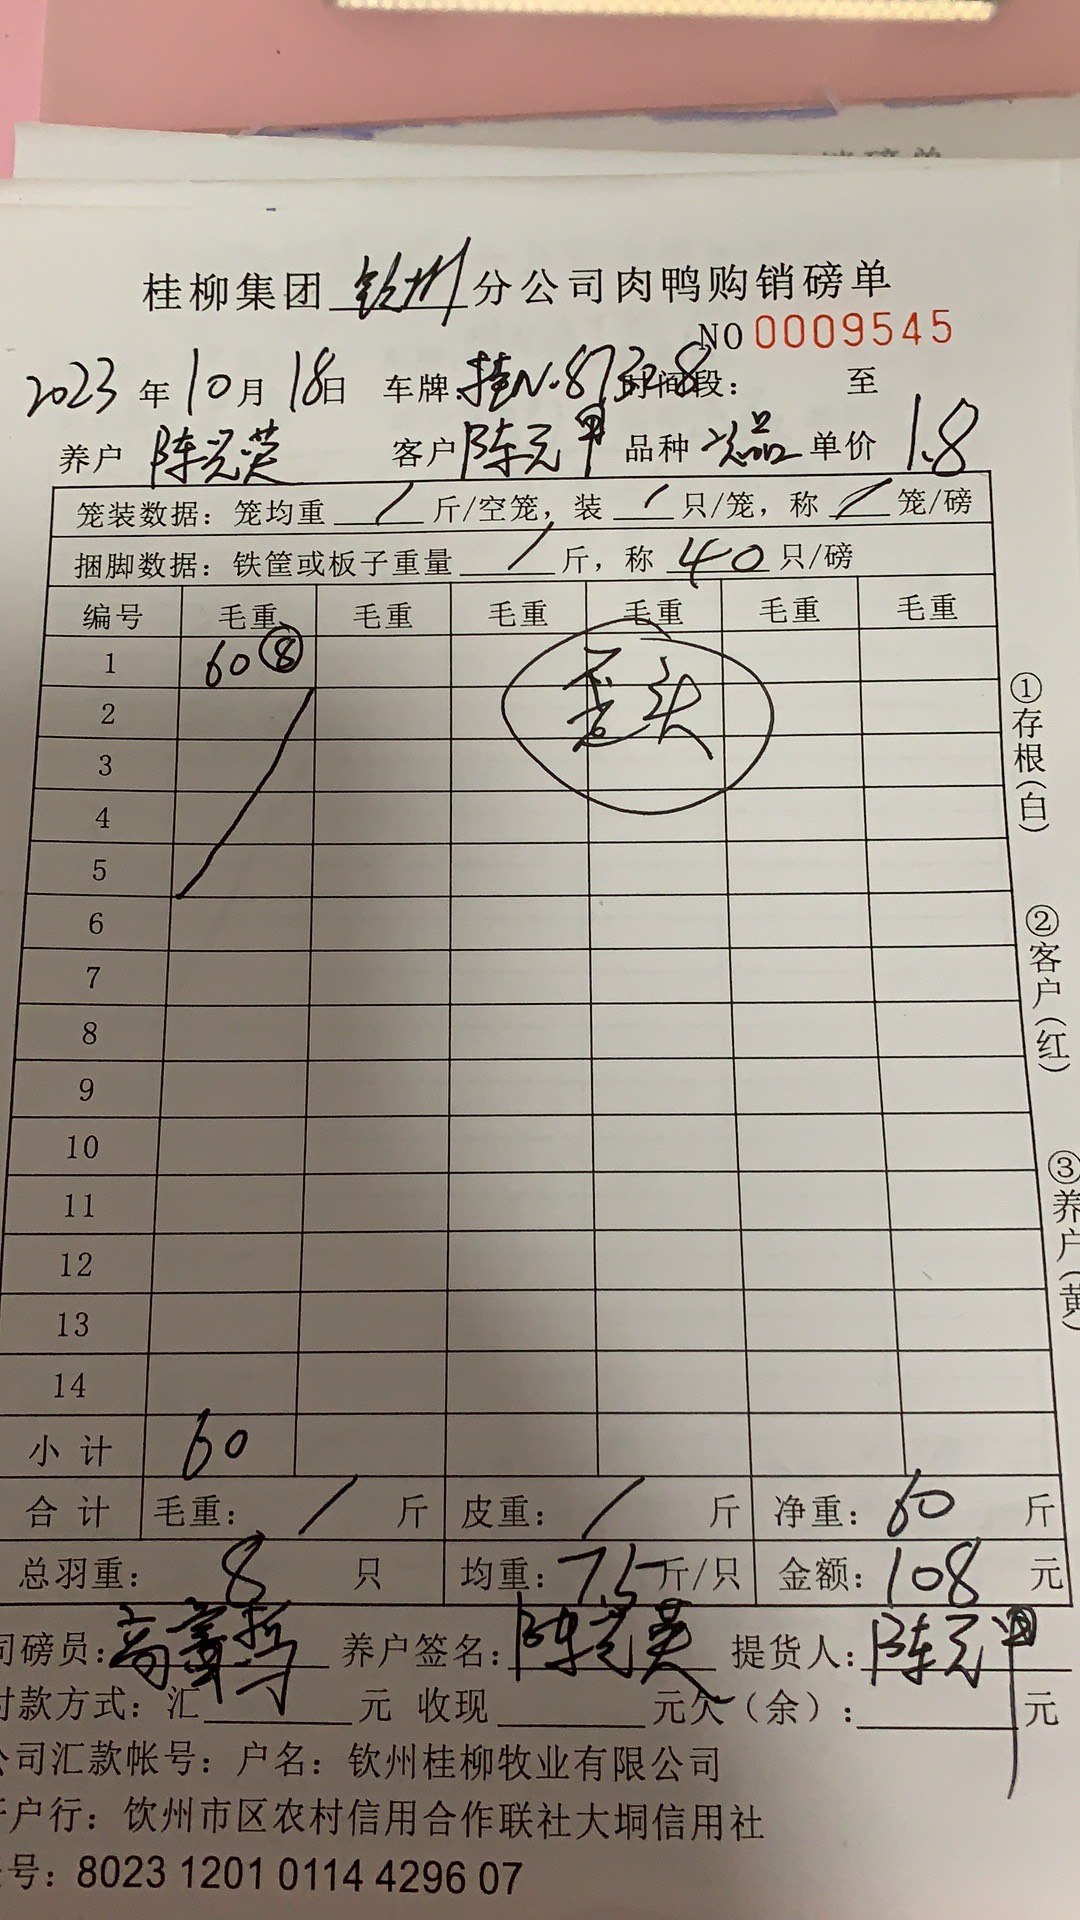 桂柳集团 钦州 分公司肉鸭购销磅单
NO 0009545
2023 年 10 月 18 日 车牌:桂N·87308 时间段: 至
养户 陈兴英 客户 陈元甲 品种 次品 单价 1.8
笼装数据:笼均重 / 斤/空笼,装 / 只/笼,称 / 笼/磅
捆脚数据:铁筐或板子重量 / 斤,称 40 只/磅
编号 毛重 毛重 毛重 毛重 毛重 毛重
1 60 ⑧
歪头
2
3
4
5
6
7
8
9
10
11
12
13
14
小计 60
合计 毛重: / 斤 皮重: / 斤 净重: 60 斤
总羽重: 8 只 均重: 7.5 斤/只 金额: 108 元
司磅员: 养户签名: 陈兴英 提货人: 陈元甲
付款方式:汇 元 收现 元欠(余): 元
公司汇款帐号:户名:钦州桂柳牧业有限公司
开户行:钦州市区农村信用合作联社大垌信用社
号:8023 1201 0114 4296 07
①存根(白)
②客户(红)
③养户(黄)